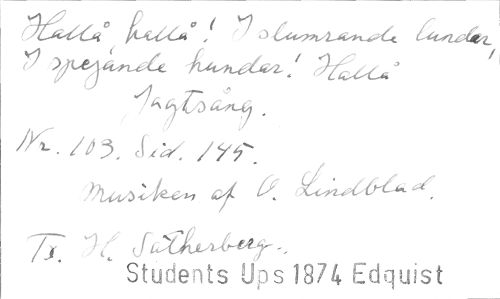 Hallå, hallå! I slumrande lundar,
I spejande hundar! Hallå
Jagtsång.
Nr. 103. Sid. 145.
Musiken af O. Lindblad.
Tx. H. Sätherberg.
Students Ups 1874 Edquist